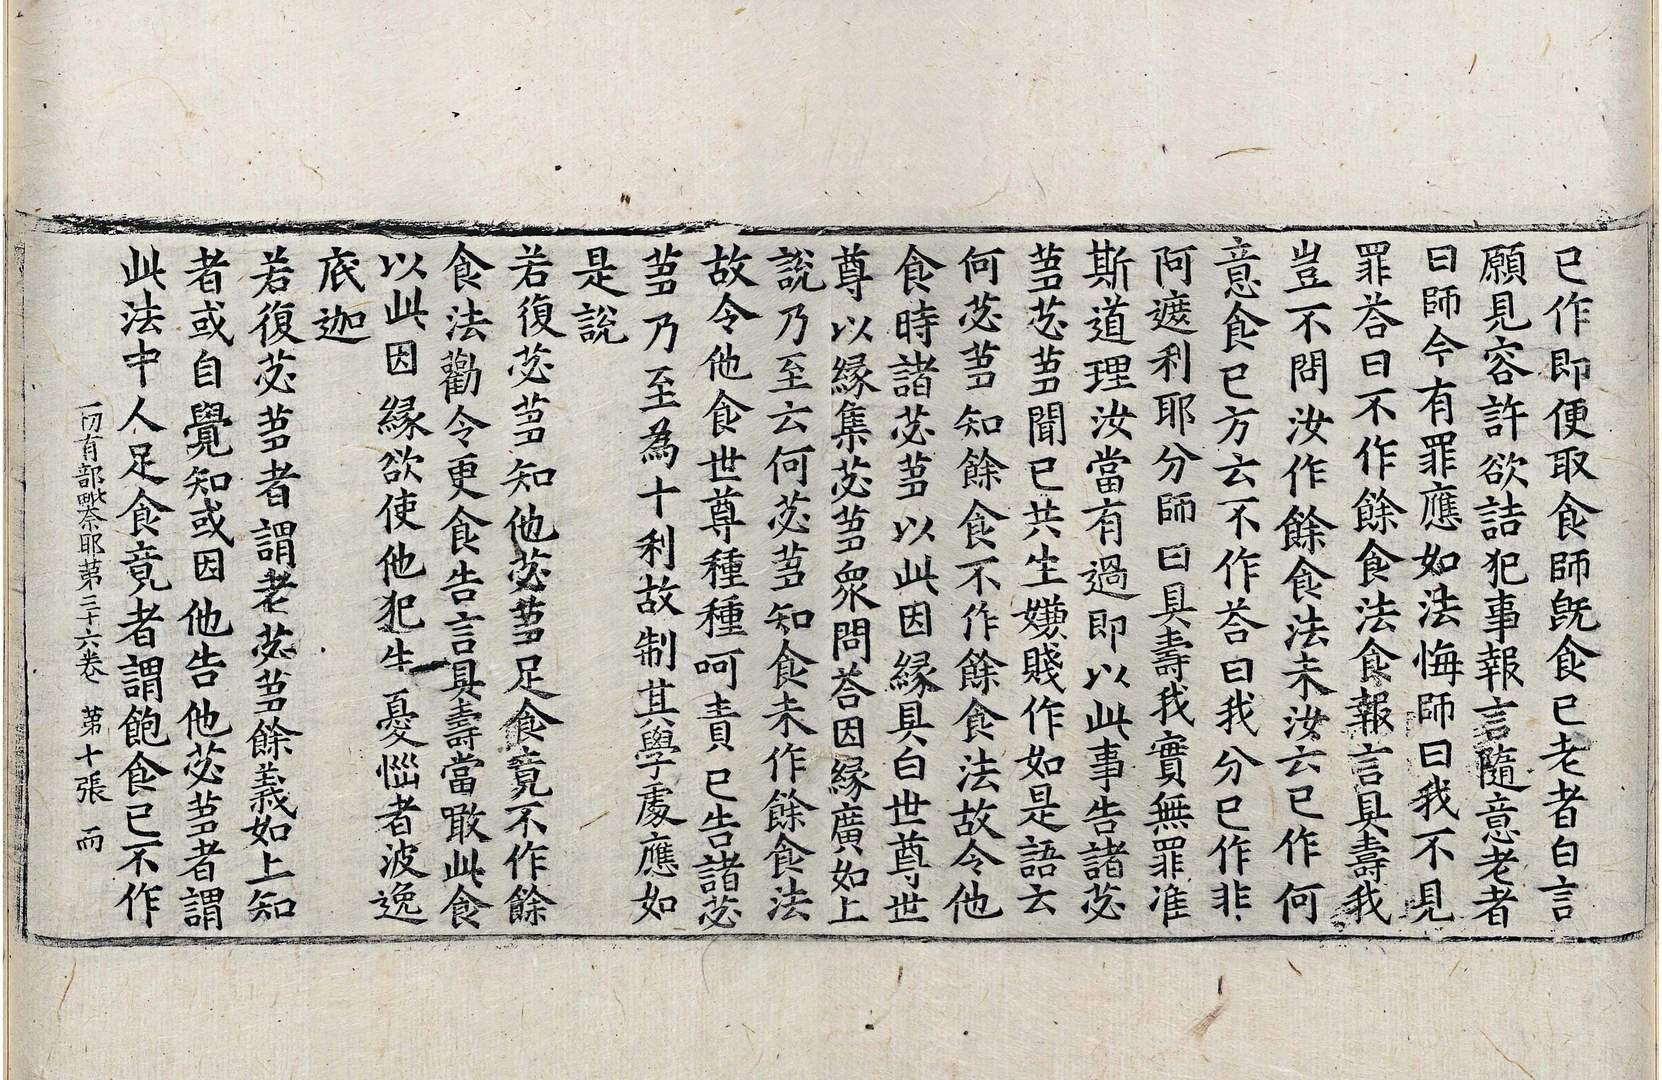 已作即便取食師旣食已老者白言
願見容許欲詰犯事報言隨意老者
曰師今有罪應如法悔師曰我不見
罪荅曰不作餘食法食報言具壽我
豈不問汝作餘食法未汝云已作何
意食已方云不作荅曰我分已作非
阿遮利耶分師曰具壽我實無罪准
斯道理汝當有過即以此事告諸苾
蒭苾蒭聞已共生嫌賤作如是語云
何苾蒭知餘食不作餘食法故令他
食時諸苾蒭以此因緣具白世尊世
尊以緣集苾蒭衆問荅因緣廣如上
說乃至云何苾蒭知食未作餘食法
故令他食世尊種種呵責已告諸苾
蒭乃至爲十利故制其學處應如
是說
若復苾蒭知他苾蒭足食竟不作餘
食法勸令更食告言具壽當噉此食
以此因緣欲使他犯生憂惱者波逸
底迦
若復苾蒭者謂老苾蒭餘義如上知
者或自覺知或因他告他苾蒭者謂
此法中人足食竟者謂飽食已不作
一切有部毗奈耶第三十六卷 第十張 而